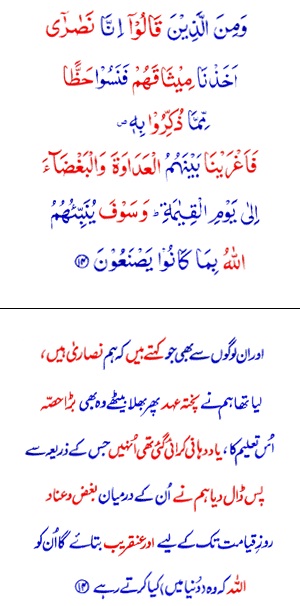 وَمِنَ الَّذِیْنَ قَالُوْۤا اِنَّا نَصٰرٰۤی
اَخَذْنَا مِیْثَاقَهُمْ فَنَسُوْا حَظًّا
مِّمَّا ذُكِّرُوْا بِهٖ ۪
فَاَغْرَیْنَا بَیْنَهُمُ الْعَدَاوَةَ وَالْبَغْضَآءَ
اِلٰی یَوْمِ الْقِیٰمَةِ ؕ وَسَوْفَ یُنَبِّئُهُمُ
اللّٰهُ بِمَا كَانُوْا یَصْنَعُوْنَ ﴿۱۴﴾
اور ان لوگوں سے بھی جو کہتے ہیں کہ ہم نصاریٰ ہیں،
لیا تھا ہم نے پختہ عہد پھر بھلا بیٹھے وہ بھی بڑا حصّہ
اُس تعلیم کا، یاد دہانی کرائی گئی تھی اُنہیں جس کے ذریعہ سے
پس ڈال دیا ہم نے اُن کے درمیان بغض و عناد
روزِ قیامت تک کے لیے اور عنقریب بتائے گا اُن کو
اللہ کہ وہ (دُنیا میں) کیا کرتے رہے ﴿۱۴﴾